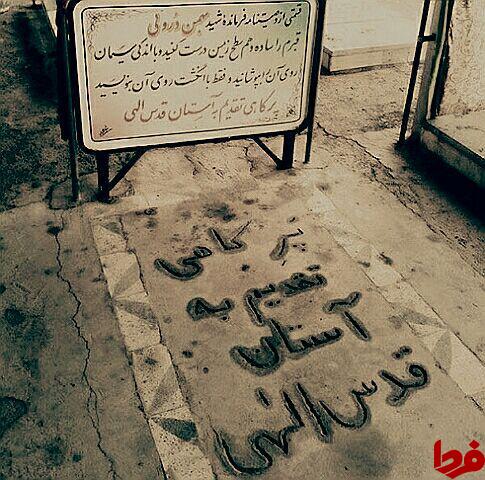 قسمتی از وصیتنامه فرمانده شهید بهمن درولی
قبرم را ساده و هم سطح زمین درست کنید و با اندکی سیمان
روی آن را بپوشانید و فقط با انگشت روی آن بنویسید
پر کاهی تقدیم به آستان قدس الهی
پر کاهی
تقدیم به
آستان
قدس الهی
فردا